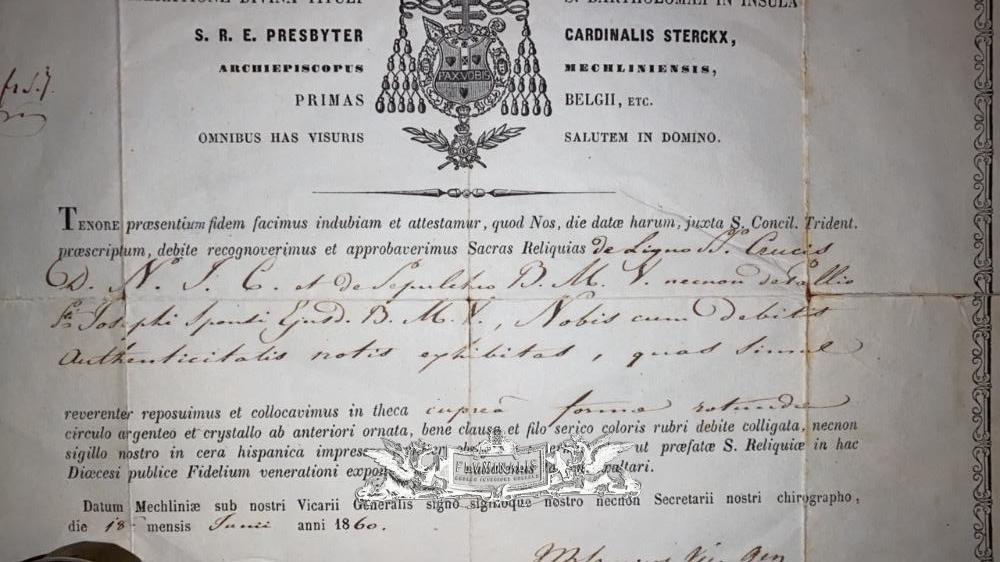 DIVINA TITULI S. BARTHOLOMÆI IN INSULA
S. R. E. PRESBYTER CARDINALIS STERCKX,
ARCHIEPISCOPUS MECHLINIENSIS,
PAX VOBIS
PRIMAS BELGII, ETC.
OMNIBUS HAS VISURIS SALUTEM IN DOMINO.
TENORE præsentium fidem facimus indubiam et attestamur, quod Nos, die datæ harum, juxta S. Concil. Trident.
præscriptum, debite recognoverimus et approbaverimus Sacras Reliquias de Ligno Sæ Crucis
D. N. J. C. et de Sepulchro B. M. V. necnon de Pallio
Sti Josephi Sponsi Ejusd. B. M. V., Nobis cum debitis
authenticitatis notis exhibitas, quas simul
reverenter reposuimus et collocavimus in theca cupreâ formæ rotundæ
circulo argenteo et crystallo ab anteriori ornata, bene clausa et filo serico coloris rubri debite colligata, necnon
sigillo nostro in cera hispanica ut præfatæ S. Reliquiæ in hac
Diœcesi publice Fidelium venerationi
Datum Mechliniæ sub nostri Vicarii Generalis signo sigilloque nostro necnon Secretarii nostri chirographo,
die 18 mensis Junii anni 1860.
Vic. Gen.